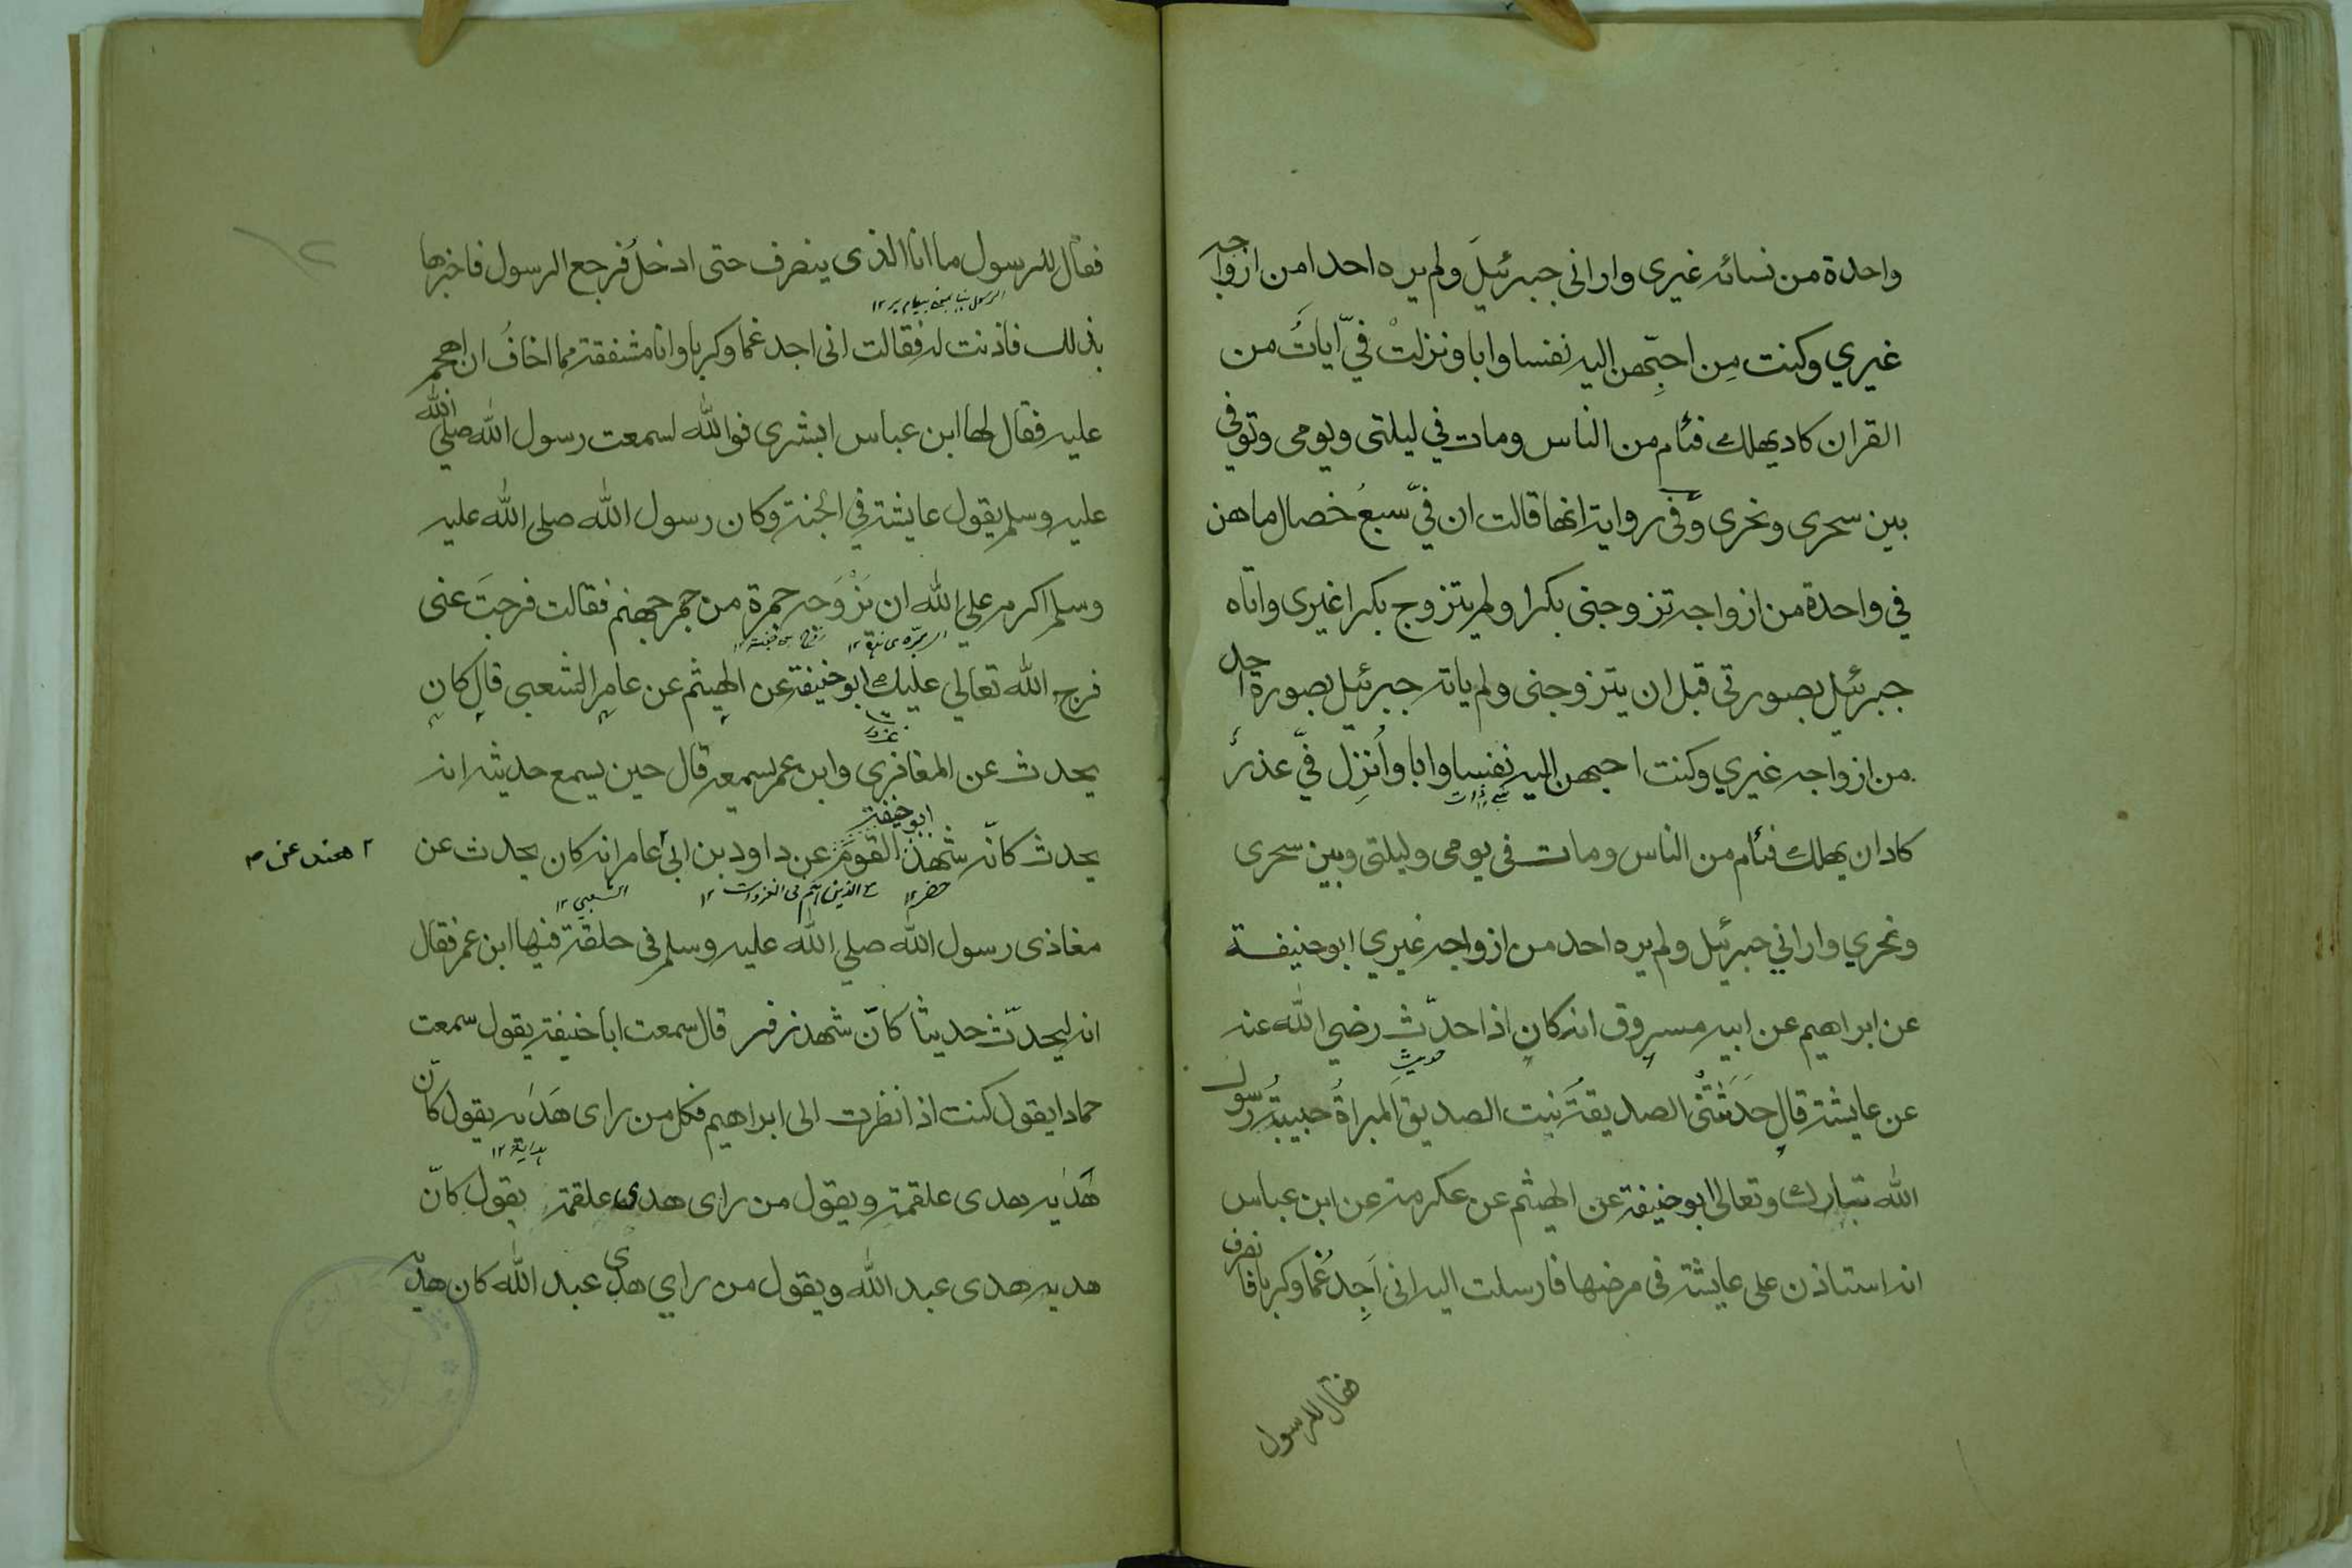 واحدة من نسائه غيرى وارانى جبرئيل ولم يره احدا من ازواجه
غيري وكنت مِن احبّهن اليه نفسا وابا ونزلتْ فيّ اٰيات من
القران كاد يهلك فئام من الناس ومات في ليلتى ويومى وتوفى
بين سحرى ونحرى وفى رواية انها قالت ان فيّ سبعُ خصال ما هن
في واحدة من ازواجه تزوجنى بكرا ولم يتزوج بكرا غيرى واتاه
جبرئيل بصورتى قبل ان يتزوجنى ولم ياته جبرئيل بصورة احد
من ازواجه غيري وكنت احبهن اليه نفسا وابا واُنزِل فيّ عذرٌ
كاد ان يهلك فئام من الناس ومات فى يومى وليلتى وبين سحرى
ونحري واراني جبرئيل ولم يره احد من ازواجه غيري ابو حنيفة
عن ابراهيم عن ابيه مسروق انه كان اذا حدّث رضي الله عنه
حديث
عن عايشة قال حَدَثَتْنى الصديقةُ بنت الصديق المبراةُ حبيبةُ رسول
الله تبارك وتعالى ابو حنيفة عن الهيثم عن عكرمة عن ابن عباس
انه استاذن على عايشة فى مرضها فارسلت اليه انى اَجِد غُما وكربا فانصرف
فقال للرسول
فقال للرسول ما انا الذى ينصرف حتى ادخلُ فرجع الرسول فاخبرها
بذلك فاذنت له فقالت انى اجد غما وكربا وانا مشفقة مما اخافُ ان اهجم
عليه فقال لها ابن عباس ابشرى فوالله لسمعت رسول الله صلي الله
عليه وسلم يقول عايشة في الجنة وكان رسول الله صلى الله عليه
وسلم اكرم علي الله ان يَزْوَجه جمرة من جمر جهنم فقالت فرجتَ عنى
فرج الله تعالي عليك ابو حنيفة عن الهيثم عن عامر الشعبى قال كان
يحدث عن المغافرى وابن عمر يسمعه قال حين يسمع حديثه انه
ابو حنيفة
يحدث كانّه شهذ القوم عن داود بن ابى عامر انه كان يحدث عن
هند عن
حضر ١٢
الشعبي ١٢
مغاذى رسول الله صلي الله عليه وسلم فى حلقة فيها ابن عمر فقال
انه ليحدّث حديثا كانّ شهد زفر قال سمعت ابا حنيفة يقول سمعت
حمادا يقول كنت اذا نظرت الى ابراهيم فكل من راى هَدَيه يقول كانّ
هَدَيه هدى علقمة ويقول من راى هدى علقمة يقول كانّ
هديه هدى عبد الله ويقول من راي هدى عبد الله كان هديه